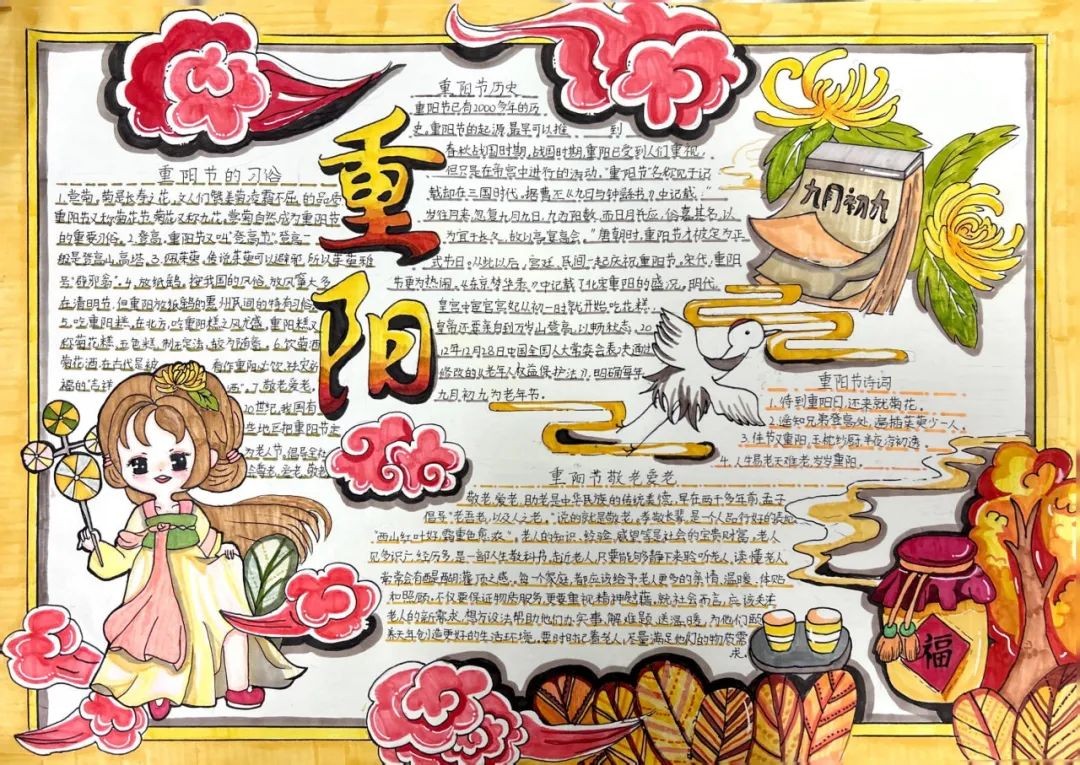 重阳
重阳节的习俗
1.赏菊,菊是长寿之花,文人们赞美菊凌霜不屈的品质
重阳节又称菊花节,菊花又称九花,赏菊自然成为重阳节
的重要习俗。2.登高,重阳节又叫"登高节",登高一
般是登高山,高塔。3.佩茱萸,
号"辟邪翁"。4.放纸鹞,按我国的风俗,放风筝大多
在清明节,但重阳放纸鹞的惠州民间的特有习俗
5.吃重阳糕,在北方,吃重阳糕之风尤盛,重阳糕又
称菊花糕、五色糕,制无定法,较为随意。6.饮菊酒
菊花酒,在古代是被看作重阳必饮、祛灾祈
福的"吉祥酒"。7.敬老爱老。
20世纪,我国有
些地区把重阳节定
为老人节。倡导全社
会尊老、爱老、敬老
重阳节历史
重阳节已有2000多年的历
史。重阳节的起源,最早可以推到
春秋战国时期。战国时期,重阳已受到人们重视,
但只是在帝宫中进行的活动。"重阳节"名称见于记
载却在三国时代。据曹丕《九日与钟繇书》中记载:"
岁往月来,忽复九月九日。九为阳数,而日月并应,俗嘉其名,以
为宜于长久,故以享宴高会。"唐朝时,重阳节才被定为正
式节日。从此以后,宫廷、民间一起庆祝重阳节。宋代,重阳
节更为热闹,《东京梦华录》中记载了北宋重阳的盛况。明代,
皇宫中宦官宫妃从初一时就开始吃花糕,
皇帝还要亲自到万岁山登高,以畅秋志。20
12年12月28日中国全国人大常委会表决通过
修改的《老年人权益保护法》,明确每年
九月初九为老年节。
九月初九
重阳节诗词
1.待到重阳日,还来就菊花。
2.遥知兄弟登高处,遍插茱萸少一人。
3.佳节又重阳,玉枕纱厨,半夜凉初透
4.人生易老天难老,岁岁重阳。
重阳节敬老爱老
敬老、爱老、助老是中华民族的传统美德,早在两千多年前,孟子
倡导"老吾老,以及人之老。"说的就是敬老。孝敬长辈,是个人品行好的表现
"西山红叶好,霜重色愈浓"。老人的知识、经验、威望等是社会的宝贵财富,老人
见多识广,经历多,是一部人生教科书,走近老人,只要能够静下来聆听老人,读懂老人
常常会有醍醐灌顶之感。每个家庭,都应该给予老人更多的亲情、温暖、体贴
和照顾,不仅要保证物质服务,更要重视精神慰藉。就社会而言,应该关注
老人的新需求,想方设法帮助他们办实事、解难题、送温暖,为他们
晚年创造更好的生活环境。要时时记着老人,尽量满足他们的物质需
求。
福